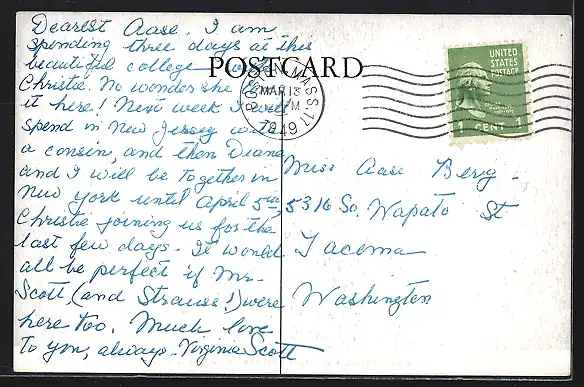 Dearest Aase. I am
spending three days at this
beautiful college with
Christie. No wonders she loves
it here! Next week I will
spend in New Jersey with
a cousin, and then Diane
and I will be together in
New York until April 5th,
Christie joining us for the
last few days. It would
all be perfect if Mr.
Scott, (and Strauss!) were
here too. Much love
to you, always. Virginia Scott
POSTCARD
BOSTON, MASS. 17
MAR 13
PM
1949
UNITED
STATES
POSTAGE
1 CENT 1
Miss Aase Berg.
5316 So. Wapato St
Tacoma
Washington